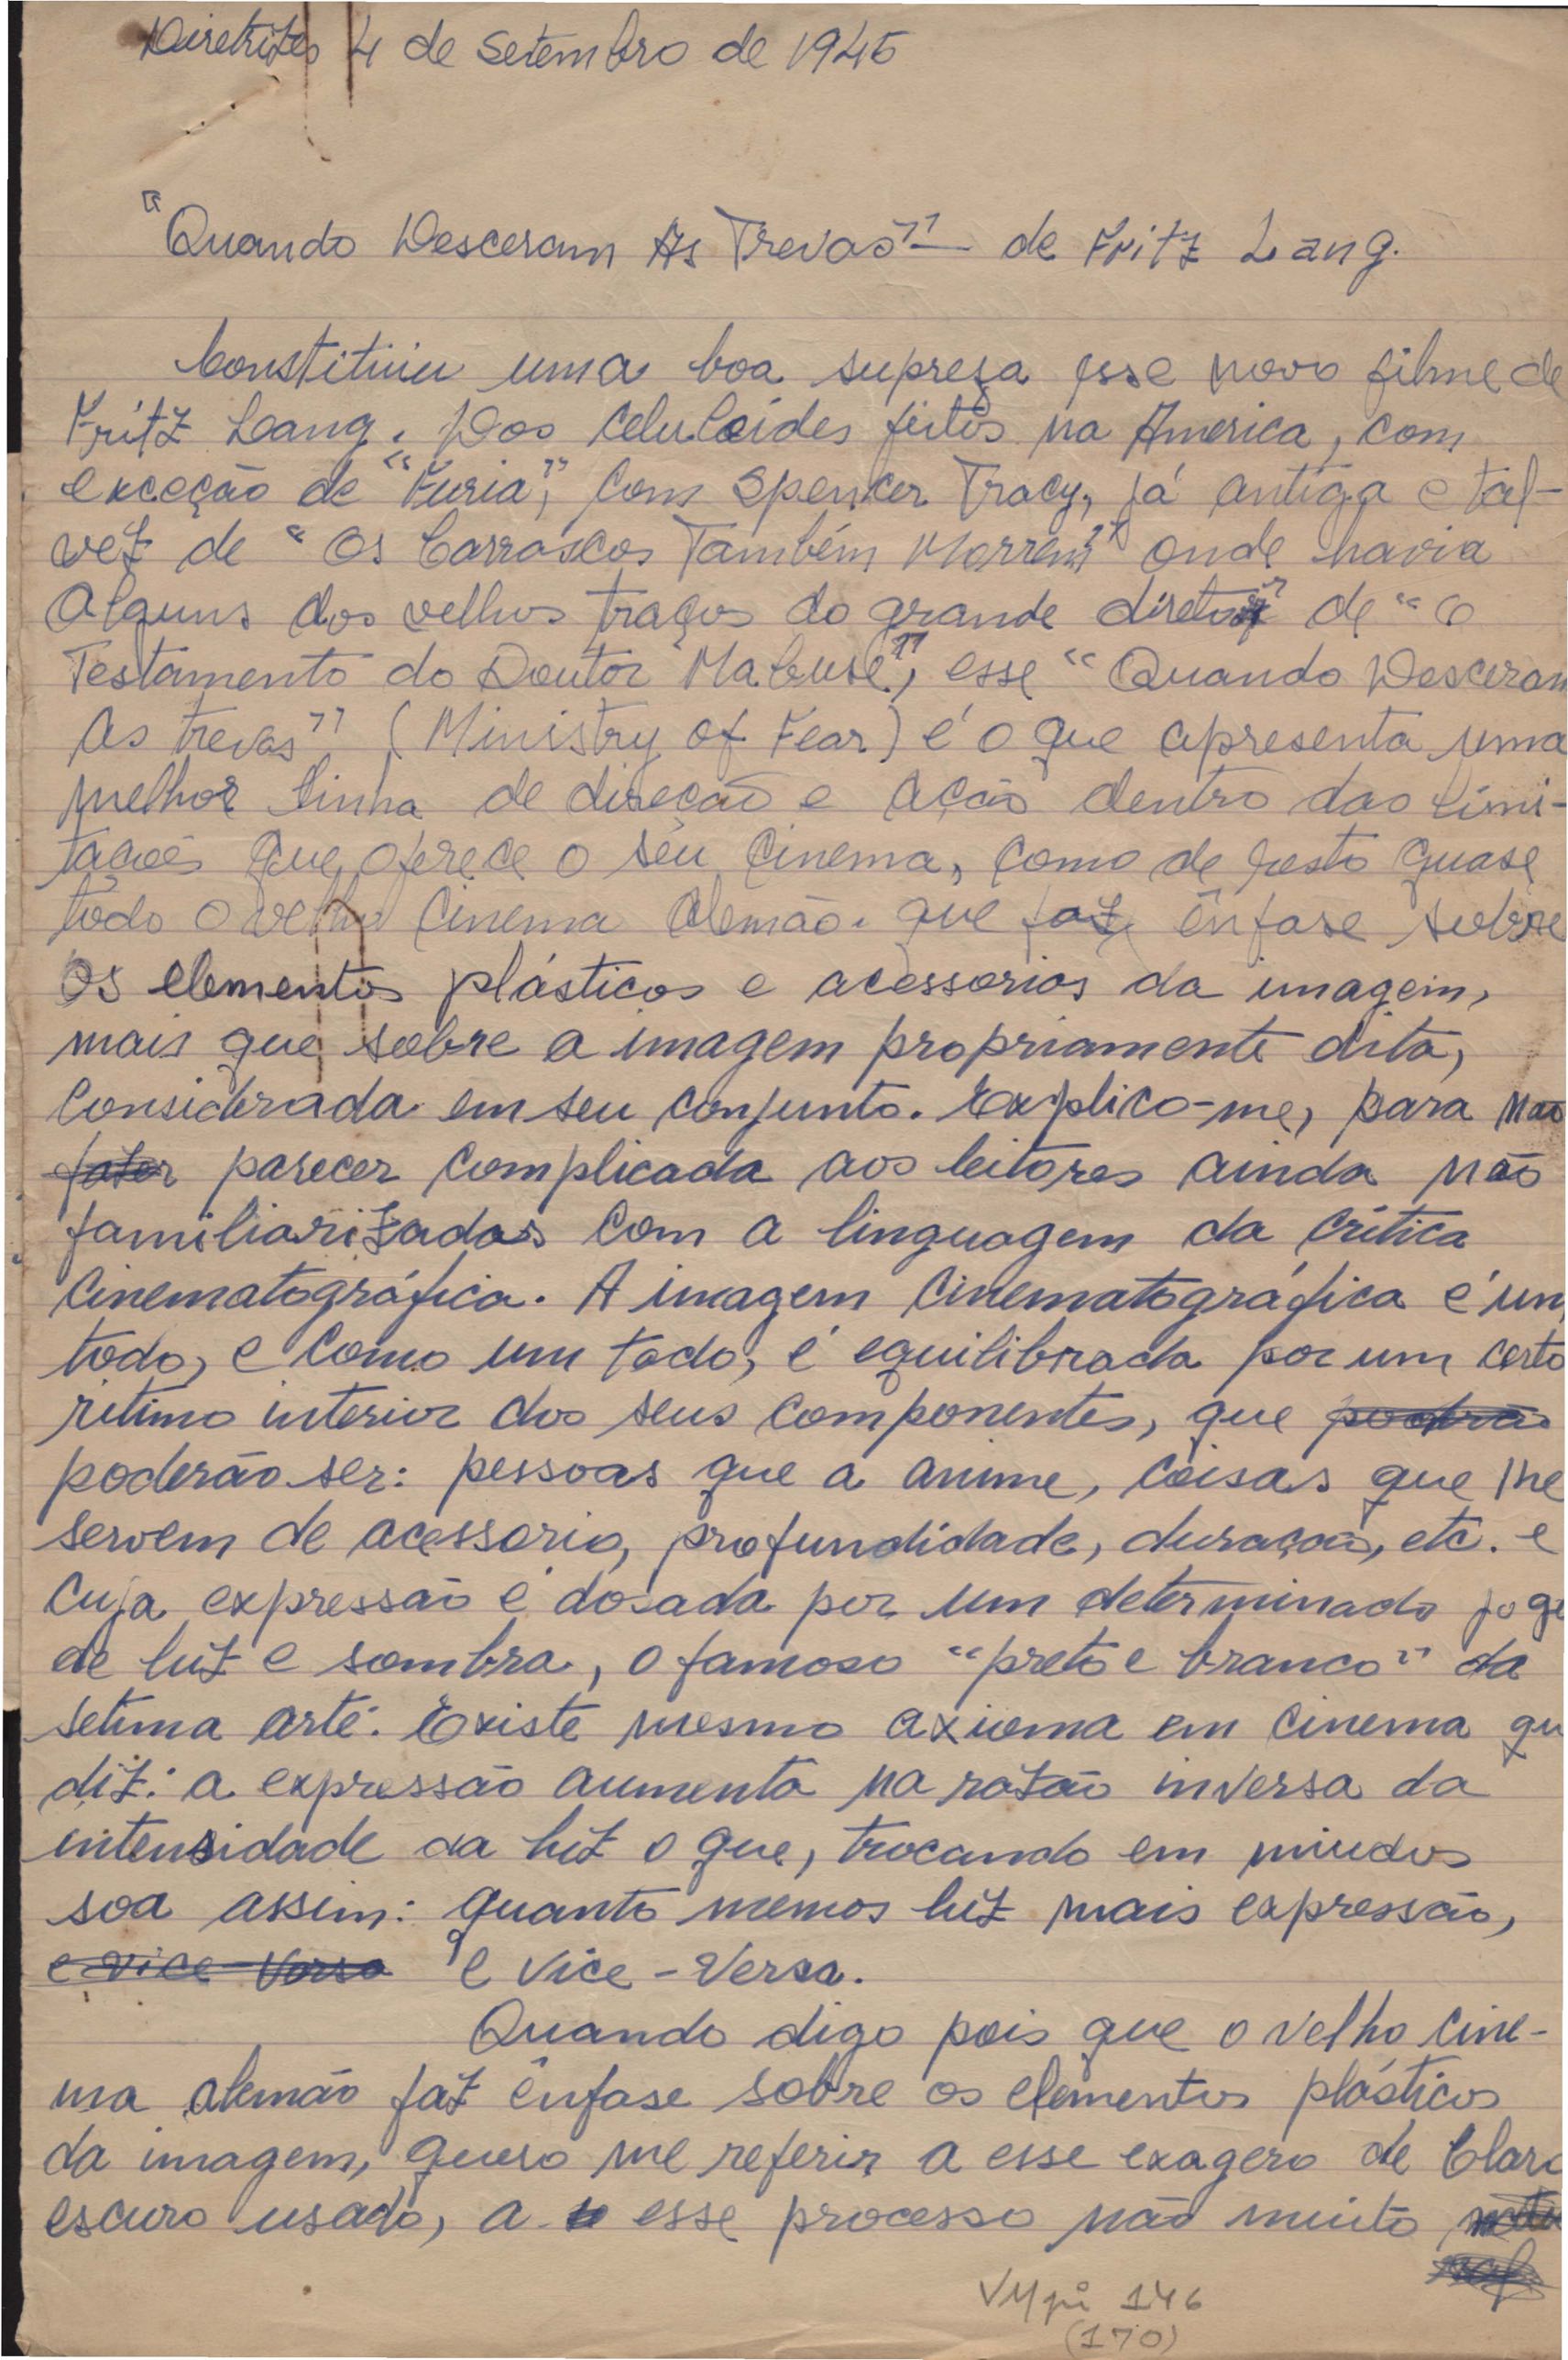 Diretrizes 4 de Setembro de 1945
"Quando Desceram As Trevas" — de Fritz Lang.
Constituiu uma boa supreza esse novo filme de
Fritz Lang. Dos celuloides feitos na America, com
exceção de "Furia", com Spencer Tracy, já antiga e tal-
vez de "Os Carrascos Também Morrem" onde havia
alguns dos velhos traços do grande diretor de "O
Testamento do Doutor Mabuse", esse "Quando Desceram
As trevas" (Ministry of Fear) é o que apresenta uma
melhor linha de direção e ação dentro das limi-
tações que oferece o seu cinema, como de resto quase
todo o velho cinema alemão. que faz ênfase sobre
os elementos plásticos e acessorios da imagem,
mais que sobre a imagem propriamente dita,
considerada em seu conjunto. Explico-me, para não
fazer parecer complicada aos leitores ainda não
familiarizados com a linguagem da crítica
cinematográfica. A imagem cinematográfica é um
todo, e como um todo, é equilibrada por um certo
ritimo interior dos seus componentes, que podra
poderão ser: pessoas que a anime, coisas que lhe
servem de acessorio, profundidade, duração, etc. e
cuja expressão é dosada por um determinado jogo
de luz e sombra, o famoso "preto e branco" da
setima arte. Existe mesmo axioma em cinema qu
diz: a expressão aumenta na razão inversa da
intensidade da luz o que, trocando em miudos
soa assim: quanto menos luz mais expressão,
e vice-versa e vice-versa.
Quando digo pois que o velho cine-
ma alemão faz ênfase sobre os elementos plásticos
da imagem, quero me referir a esse exagero de claro
escuro usado, a esse processo não muito
VMpi 146
(170)